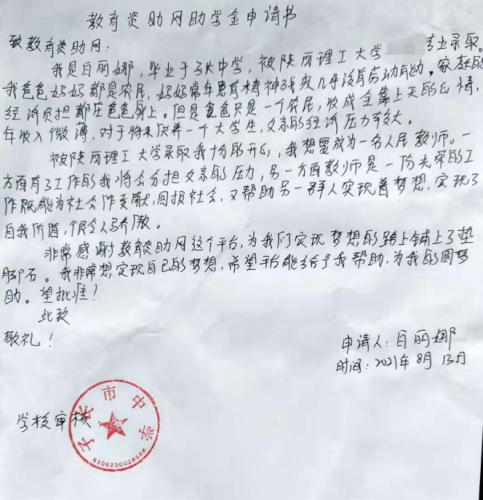 教育资助网助学金申请书
致教育资助网：
我是白丽娜，毕业于子长中学，被陕西理工大学 专业录取。
我爸爸妈妈都是农民，妈妈常年患有精神残疾几乎没有劳动能力，家庭的
经济负担都在爸爸身上。但是爸爸只是一个农民，收成全靠上天的心情，
年收入微薄，对于将来供养一个大学生，父亲的经济压力多大
被陕西理工大学录取我十分的开心，我想要成为一名人民教师。一
方面有了工作的我将会分担父亲的压力，另一方面教师是一份光荣的工
作既能为社会作贡献，回报社会，又帮助另一群人实现着梦想，实现了
自我价值，很令人骄傲。
非常感谢教育资助网这个平台，为我们实现梦想的路上铺上了垫
脚石。我非常想实现自己的梦想，希望平台能给予我帮助，为我的圆梦
助。望批准！
此致
敬礼！
申请人：白丽娜
时间：2021年8月13日
学校审核
子长市中学